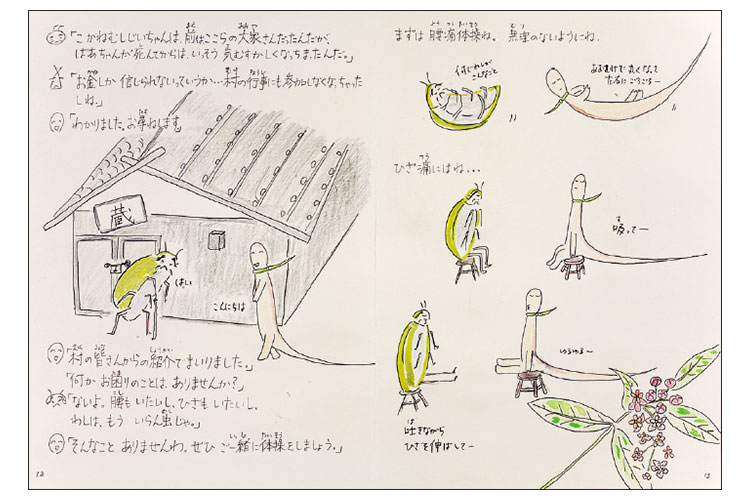 「こがねむしじいちゃんは、前はここらの大家さんだったんだが、
ばあちゃんが死んでからは、いっそう気むずかしくなっちまったんだ。」
「お金しか信じられないっていうか…村の行事にも参加しなくなっちゃった
しね。」
「わかりました。お尋ねします。」
蔵
はい
こんにちは
「村の皆さんからの紹介でまいりました。」
「何かお困りのことは、ありませんか？」
「ないよ。腰もいたいし、ひざもいたいし、
わしは、もう いらん虫じゃ。」
「そんなこと ありませんわ。ぜひ ご一緒に体操をしましょう。」
12
まずは 腰痛体操ね。 無理のないようにね。
こんなこと
あおむけで丸くなって
ごろごろー
ひざ痛にはね...
吸ってー
ゆるゆるー
吐きながら
ひざを伸ばしてー
13